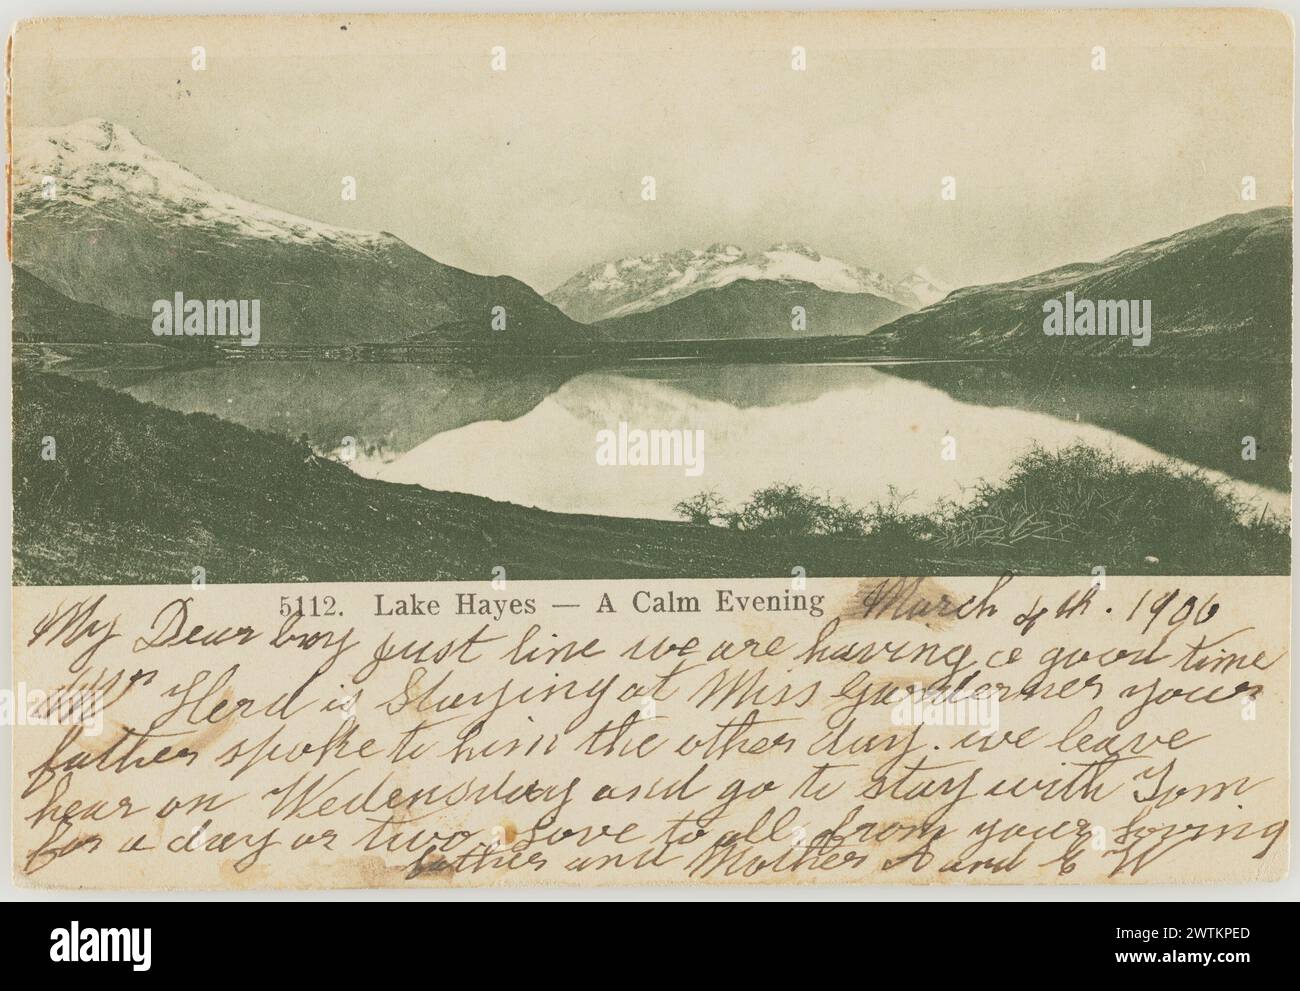 5112. Lake Hayes — A Calm Evening March 4th. 1906
My Dear boy just line we are having a good time
Mr Herd is Staying at Miss Garderner your
father spoke to him the other day. we leave
hear on Wedensday and go to stay with Tom
for a day or two. Love to all from your loving
father and Mother A and E W
alamy
alamy
Image ID: 2WTKPED
www.alamy.com